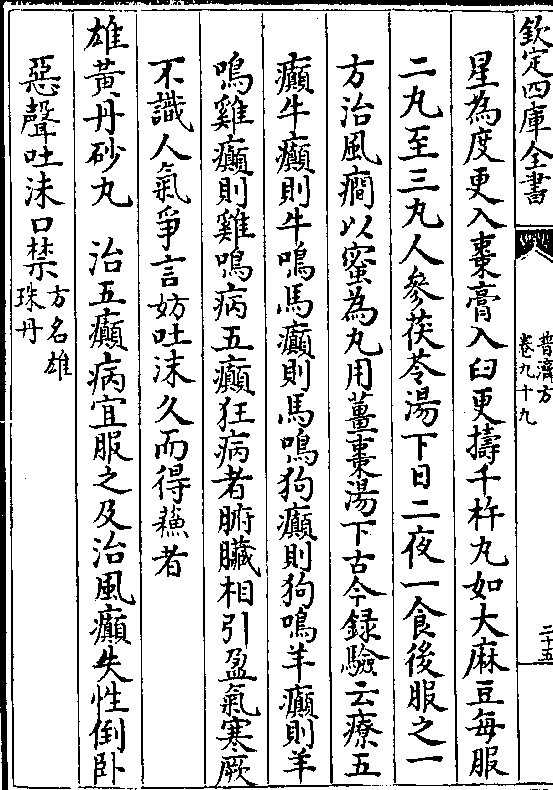 欽定四庫全書
普濟方
卷九十九
二十五
星為度更入棗膏入臼更擣千杵丸如大麻豆每服
二丸至三丸人參茯苓湯下日二夜一食後服之一
方治風癎以蜜為丸用薑棗湯下古今録驗云療五
癲牛癲則牛鳴馬癲則馬鳴狗癲則狗鳴羊癲則羊
鳴雞癲則雞鳴病五癲狂病者腑臟相引盈氣寒厥
不識人氣爭言妨吐沫久而得蘓者
雄黃丹砂丸　治五癲病宜服之及治風癲失性倒卧
惡聲吐沫口禁方名雄珠丹